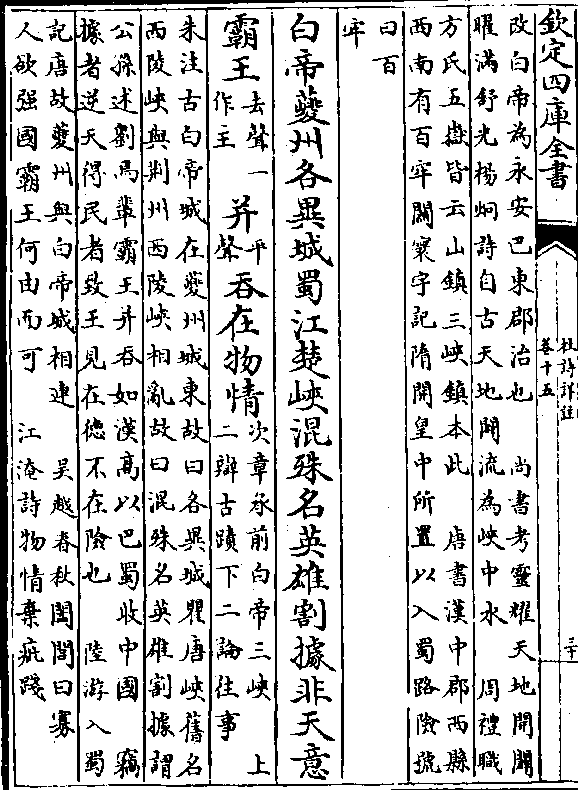 欽定四庫全書
杜詩詳註
卷十五
三十
改白帝為永安巴東郡治也　尚書考靈耀天地開闢
曜滿舒光楊炯詩自古天地闢流為峽中水　周禮職
方氏五嶽皆云山鎮三峽鎮本此　唐書漢中郡西縣
西南有百牢關寰宇記隋開皇中所置以入蜀路險號
曰百
牢
白帝夔州各異城蜀江楚峽混殊名英雄割據非天意
霸王去聲一作主并平聲吞在物情次章承前白帝三峽　上二辨古蹟下二論往事
朱注古白帝城在夔州城東故曰各異城瞿唐峽舊名
西陵峽與荆州西陵峽相亂故曰混殊名英雄割據謂
公孫述劉焉輩霸王并吞如漢高以巴蜀收中國　竊
據者逆天得民者致王見在德不在險也　陸游入蜀
記唐故夔州與白帝城相連　吳越春秋闔閭曰寡
人欲强國霸王何由而可　江淹詩物情棄疵踐